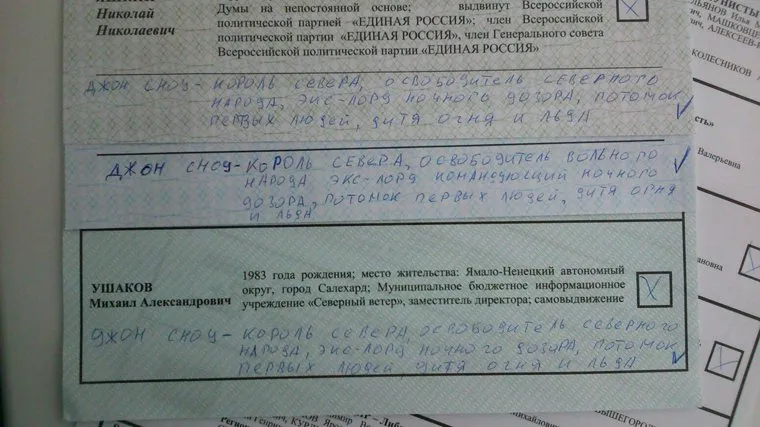 Николай
Николаевич
Думы на непостоянной основе; выдвинут Всероссийской
политической партией «ЕДИНАЯ РОССИЯ»; член Всероссийской
политической партии «ЕДИНАЯ РОССИЯ», член Генерального совета
Всероссийской политической партии «ЕДИНАЯ РОССИЯ»
ДЖОН СНОУ - КОРОЛЬ СЕВЕРА, ОСВОБОДИТЕЛЬ СЕВЕРНОГО
НАРОДА, ЭКС-ЛОРД НОЧНОГО ДОЗОРА, ПОТОМОК
ПЕРВЫХ ЛЮДЕЙ, ДИТЯ ОГНЯ И ЛЬДА
ДЖОН СНОУ - КОРОЛЬ СЕВЕРА, ОСВОБОДИТЕЛЬ ВОЛЬНОГО
НАРОДА ЭКС-ЛОРД КОМАНДУЮЩИЙ НОЧНОГО
ДОЗОРА, ПОТОМОК ПЕРВЫХ ЛЮДЕЙ, ДИТЯ ОГНЯ
И ЛЬДА
УШАКОВ
Михаил Александрович
1983 года рождения; место жительства: Ямало-Ненецкий автономный
округ, город Салехард; Муниципальное бюджетное информационное
учреждение «Северный ветер», заместитель директора; самовыдвижение
ДЖОН СНОУ - КОРОЛЬ СЕВЕРА, ОСВОБОДИТЕЛЬ СЕВЕРНОГО
НАРОДА, ЭКС-ЛОРД НОЧНОГО ДОЗОРА, ПОТОМОК
ПЕРВЫХ ЛЮДЕЙ, ДИТЯ ОГНЯ И ЛЬДА
Валерьевна